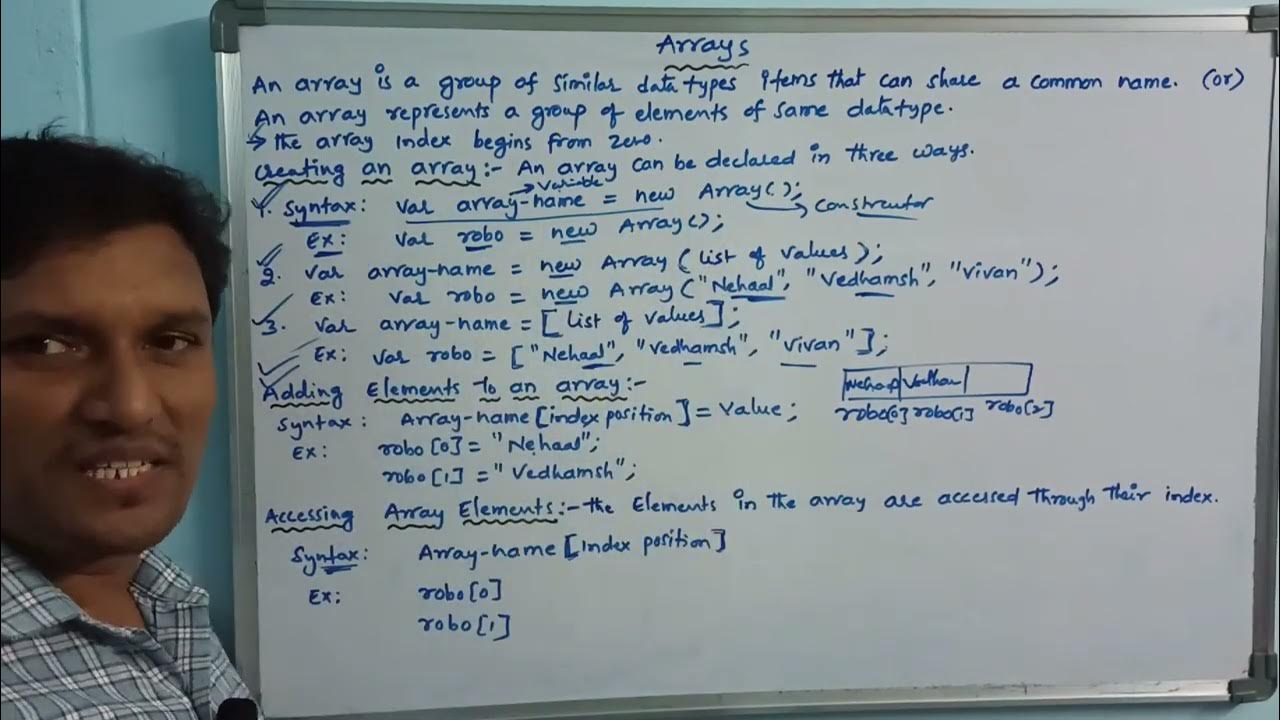 Arrays
An array is a group of similar data types items that can share a common name. (or)
An array represents a group of elements of same datatype.
→ The array index begins from zero.
Creating an array:- An array can be declared in three ways.
→ Variable
1. Syntax: var array-name = new Array(); → Constructor
Ex: var robo = new Array();
2. var array-name = new Array (list of values);
Ex: var robo = new Array ("Nehaal", "Vedhamsh", "vivan");
3. var array-name = [list of values];
Ex: var robo = ["Nehaal", "vedhamsh", "vivan"];
Adding Elements to an array:-
Syntax: Array-name [index position] = Value;
Ex: robo [0] = "Nehaal";
robo [1] = "Vedhamsh";
robo[0] robo[1] robo[2]
Accessing Array Elements:- the Elements in the array are accessed through their index.
Syntax: Array-name [index position]
Ex: robo [0]
robo [1]